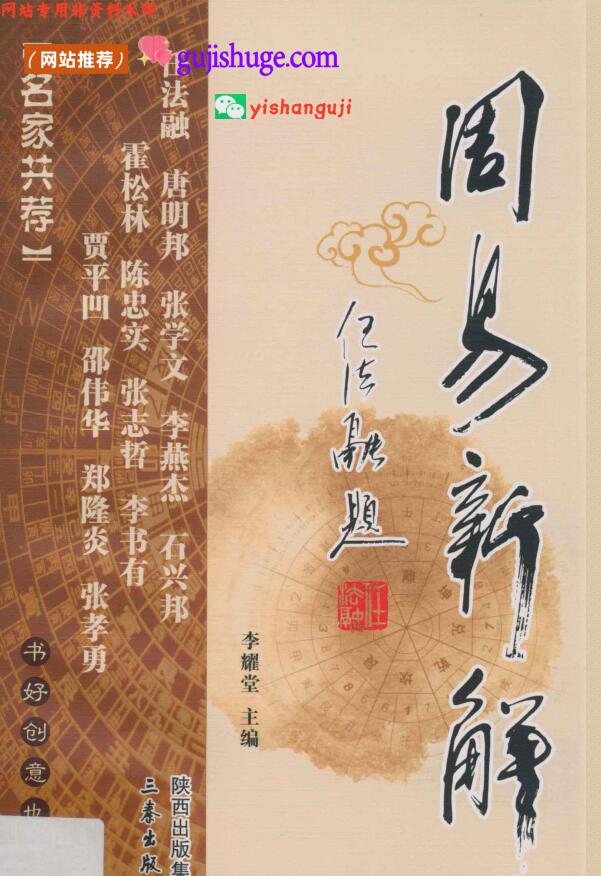 网站专用非资料水印
（网站推荐）
gujishuge.com
yishanguji
周易新解
任法融题
任法融
李耀堂 主编
名家共荐】
任法融 唐明邦 张学文 李燕杰 石兴邦
霍松林 陈忠实 张志哲 李书有
贾平凹 邵伟华 郑隆炎 张孝勇
书好创意也
陕西出版集
三秦出版